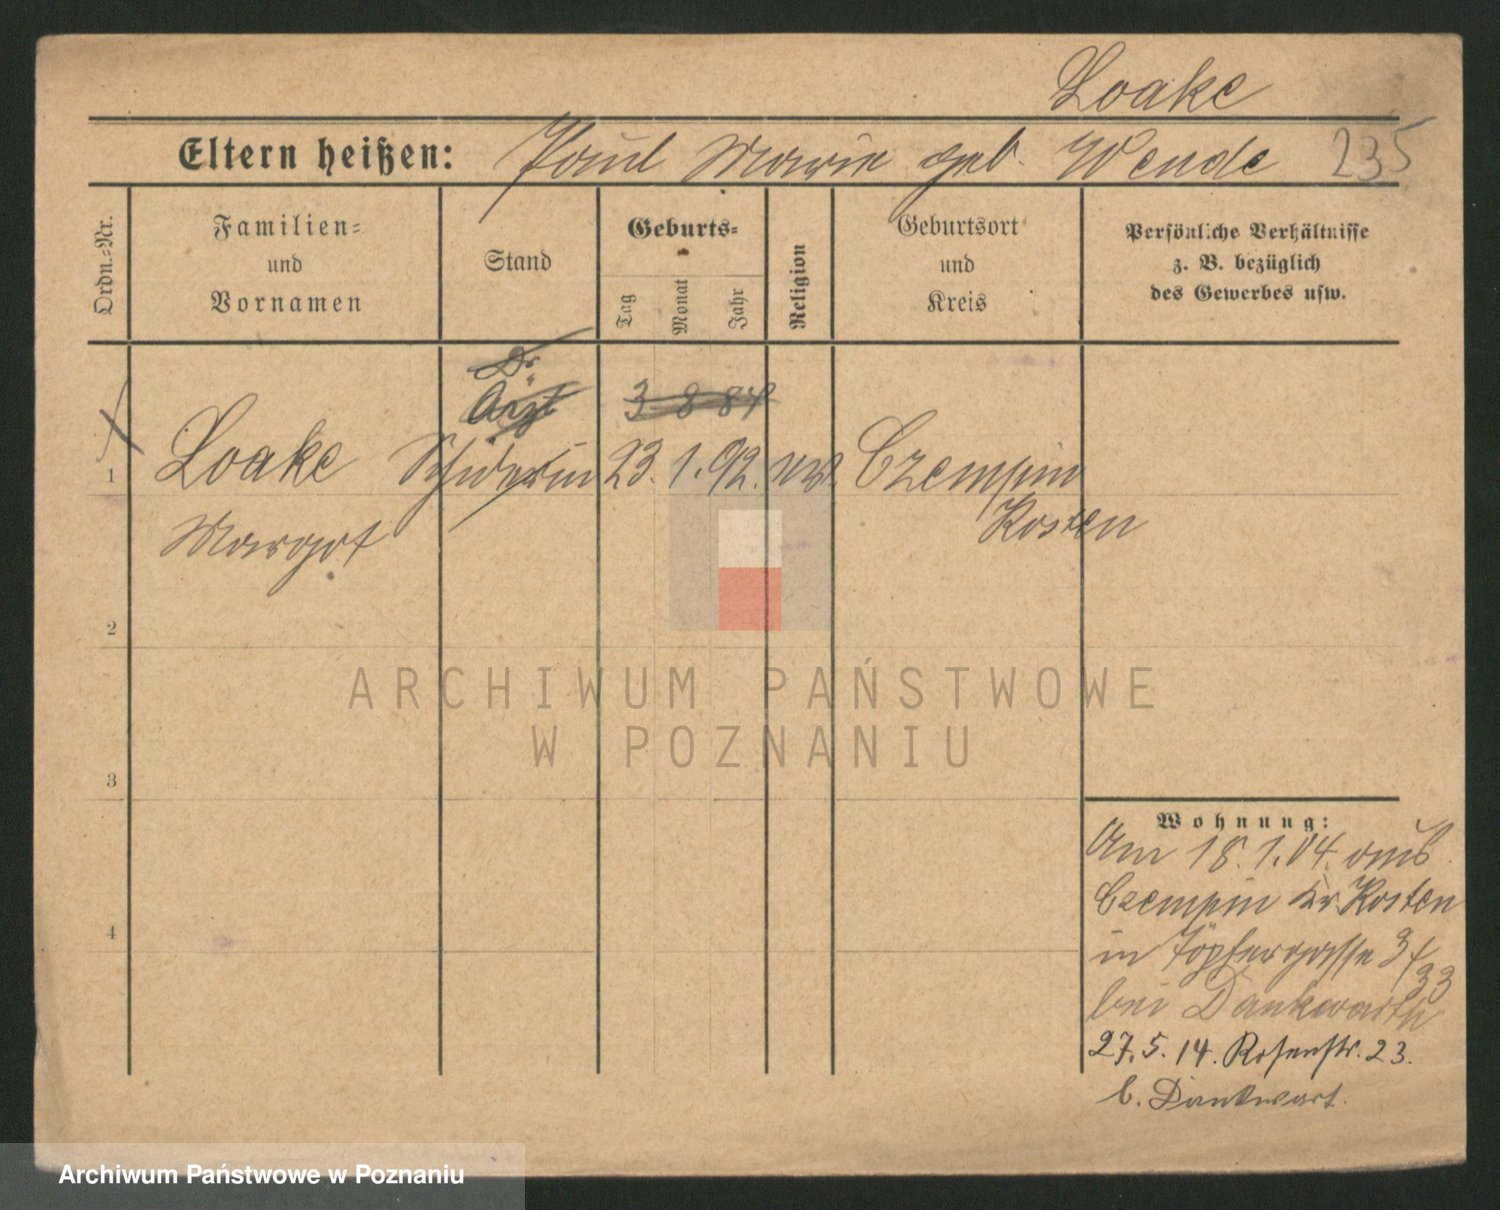 Loake
Eltern heißen: Paul Marie geb. Wende 235
Ordn.=Nr.
Familien=
und
Vornamen
Stand
Geburts=
Tag
Monat
Jahr
Religion
Geburtsort
und
Kreis
Persönliche Verhältnisse
z. B. bezüglich
des Gewerbes usw.
Dr.
Arzt 3 8 84
1 Loake 23. 1. 92. Czempin
Margot Kosten
2
3
4
ARCHIWUM PAŃSTWOWE
W POZNANIU
Wohnung:
Am 18.1.04. aus
Czempin Kr. Kosten
in Töpfergasse 3/
33
bei Dankwarth
27.5.14. Rosenstr. 23.
b. Dankwart.
Archiwum Państwowe w Poznaniu